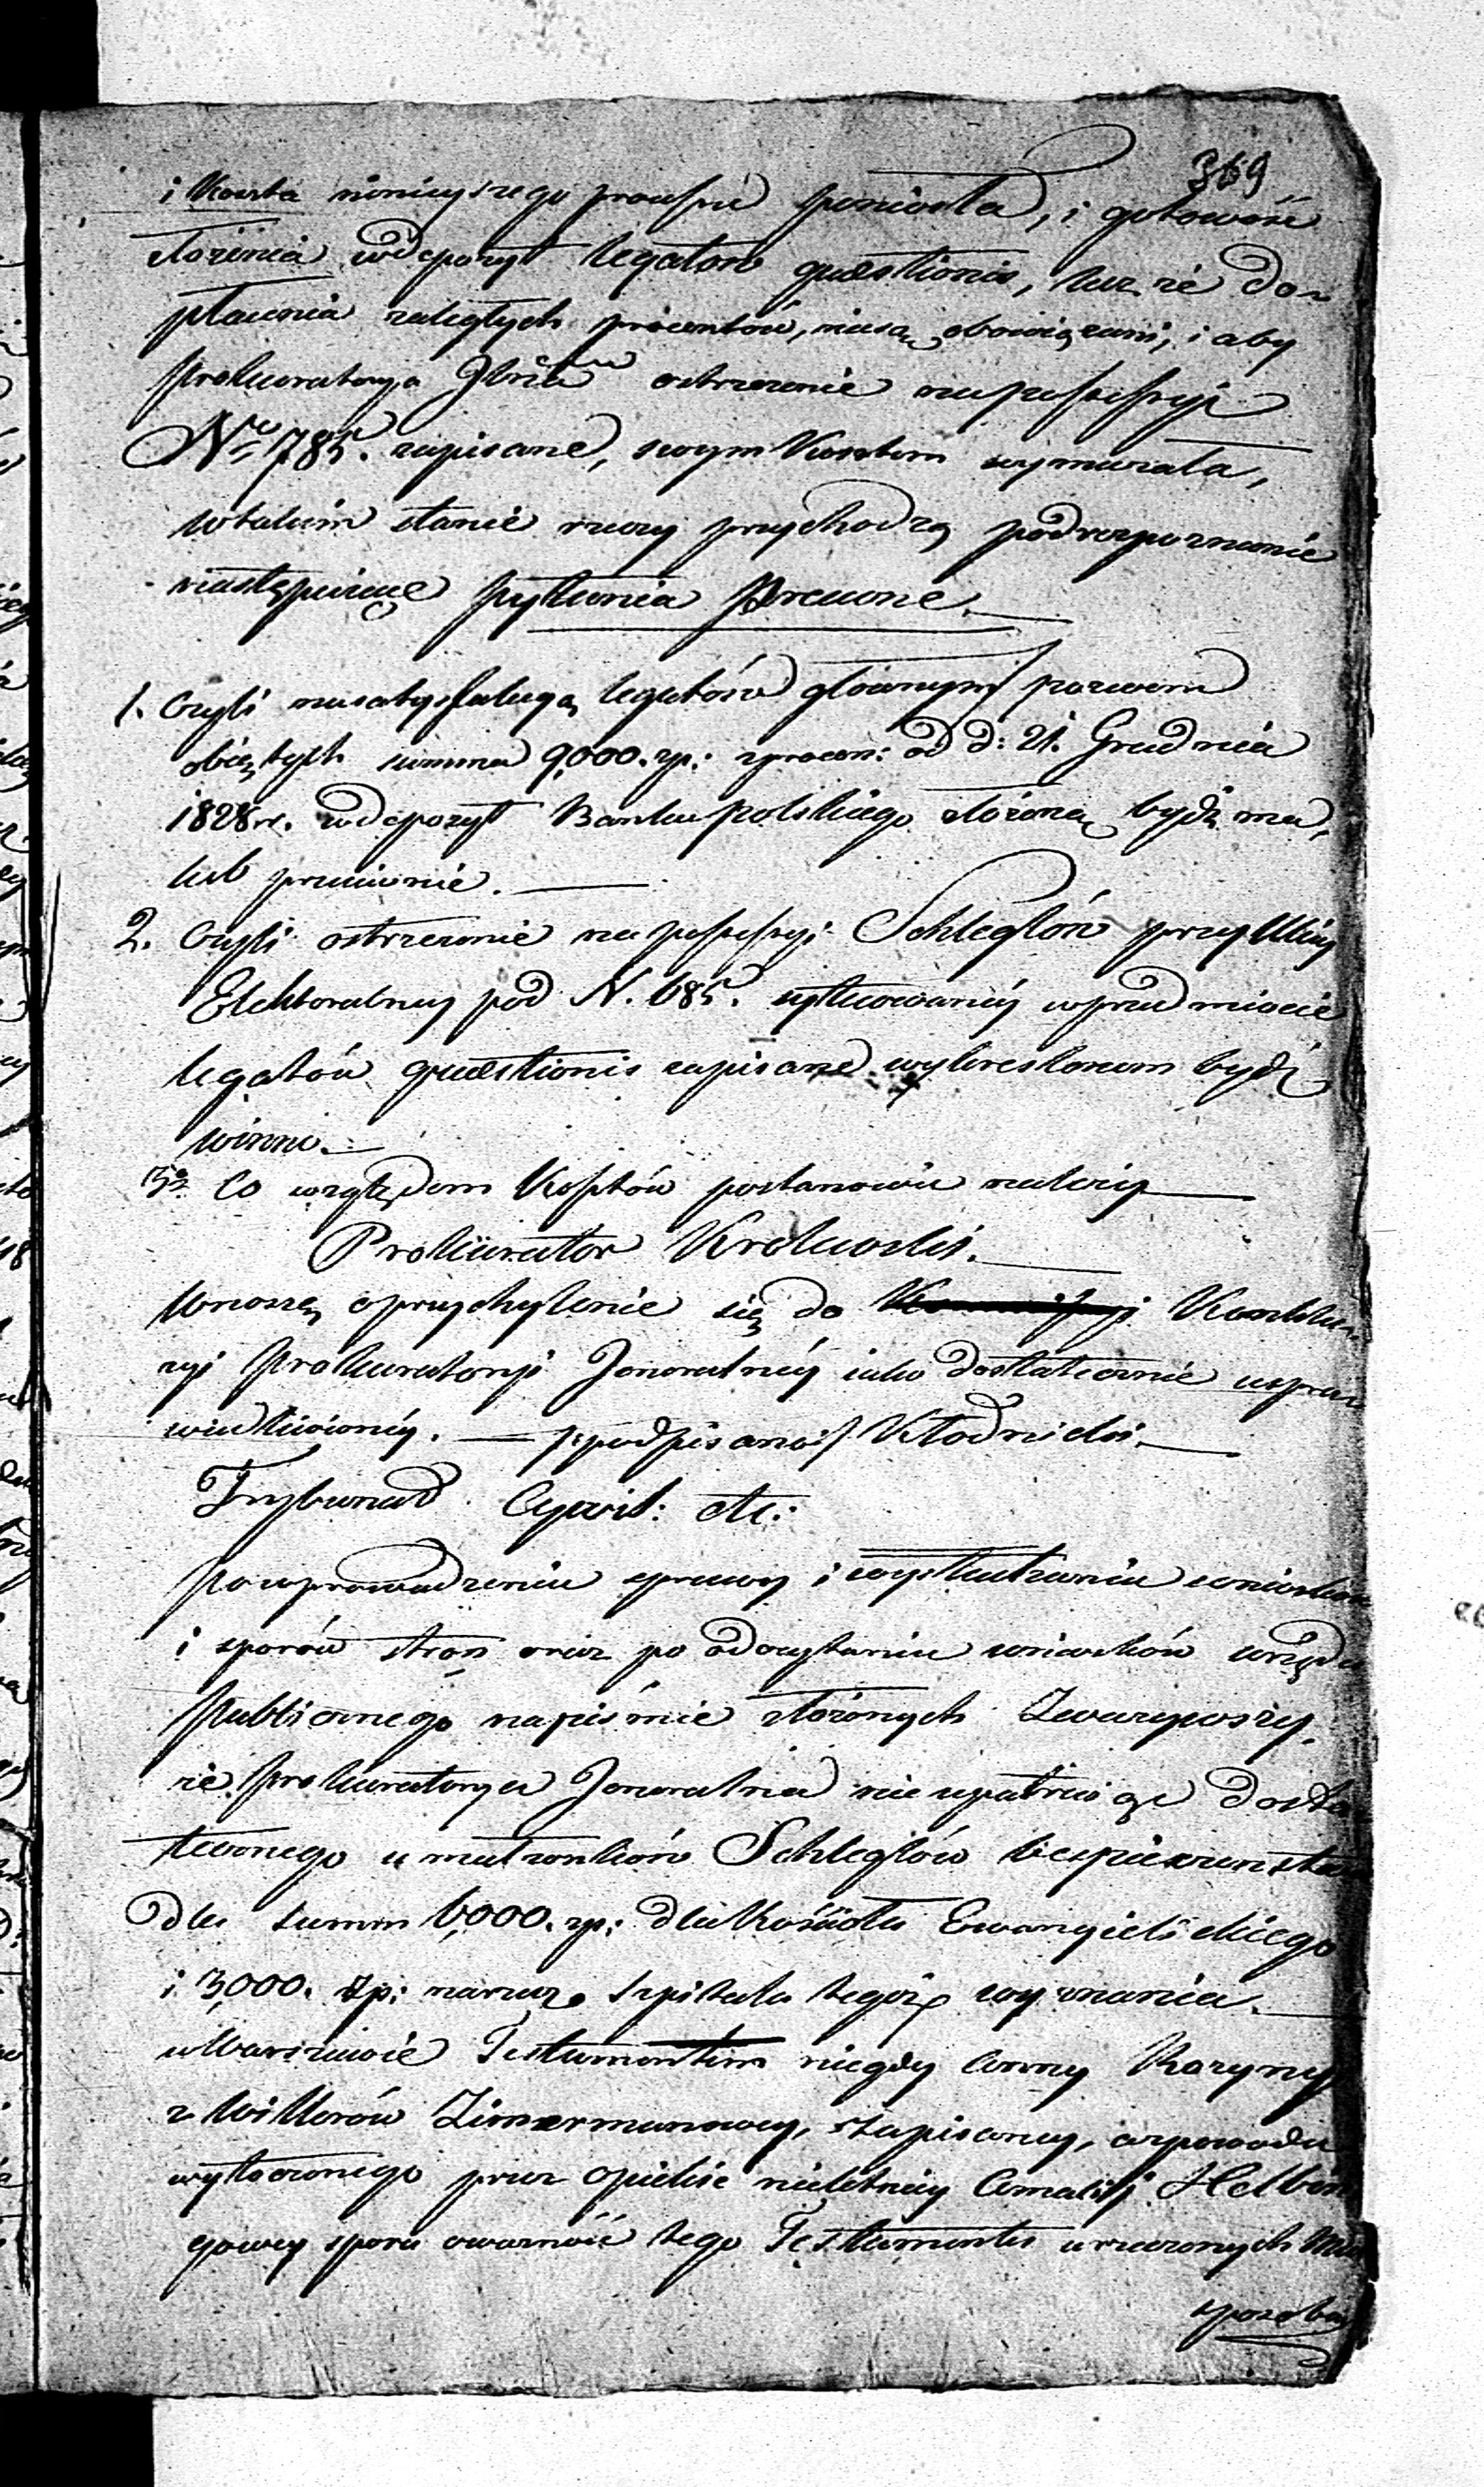 369
i Koszta ninieyszego processu poniosła, i gotowość
złożenia w depozyt legatow quaestionis, lecz że do
płacenia zaległych procentów, niesą obowiązani, i aby
Prokuratorya Jlna ostrzeżenie na possessyi
Nro 785. zapisane, swym Kosztem wymazała,
w takim stanie rzeczy przychodzą pod rozpoznanie
następuiące pytania Prawne.
1. Czyli na satysfakcyą legatów głownym pozwem
obiętych summa 9,000. zp: z procen: od d: 21. Grudnia
1828 r. w depozyt Banku Polskiego złożoną bydź ma,
lub przeciwnie.
2. Czyli ostrzeżenie na possessyi Schleglów przy Ulicy
Elektoralney pod N. 685. sytuowaney w przedmiocie
legatów quaestionis zapisane wykreślonem bydź
winno.
3o Co względem Kosztów postanowić należy
Prokurator Krolewski.
Wnoszę o przychylenie się do Konklu
zyi Prokuratoryi Jeneralnéy iako dostatecznie uspra
wiedliwionéy. — /:podpisano:/ Kłodnicki.
Trybunał Cywil: etc:
Po wprowadzeniu sprawy i wysłuchaniu wniosków
i sporów stron oraz po odczytaniu wniosków urzędu
Publicznego na piśmie złożonych Zważywszy,
że Prokuratorya Jeneralna nie upatruiąc dosta
tecznego u małżonków Schleglów bezpieczeństwa
dla summ 6,000. zp: dla Kościoła Ewangielickiego
i 3,000. zp: na rzecz Szpitala tegoż wyznania
w Warszawie Testamentem niegdy Anny Rozyny
z Willerów Zimermanowey, zapisaney, a z powodu
wytoczonego przez opiekę nieletniey Amalii Helbin
gowey sporu o ważność tego Testamentu u rzeczonych
sposoba